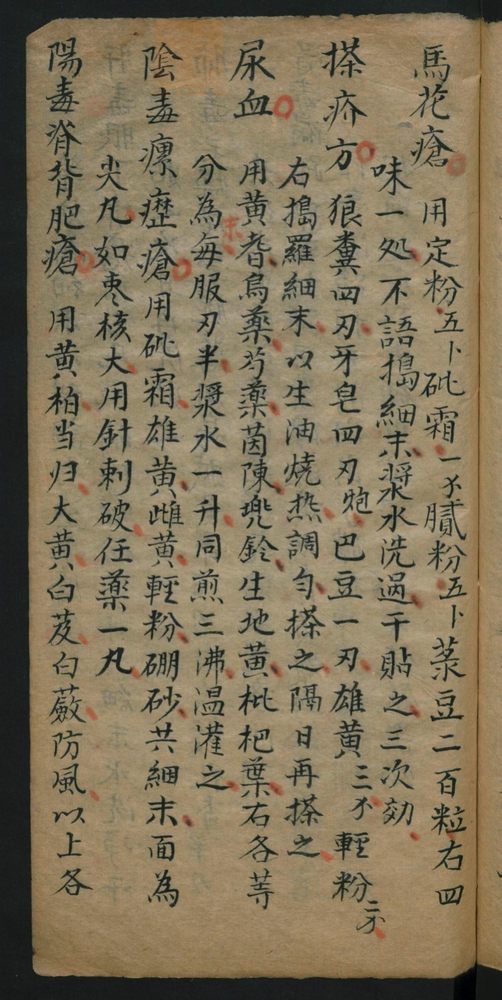 馬花瘡 用定粉五卜砒霜一不膩粉五卜菉豆二百粒右四
味一処不語搗細末漿水洗過干貼之三次効
搽疥方 狼糞四刃牙皂四刃炮巴豆一刃雄黄三不輕粉二分
右搗羅細末以生油燒热調勻搽之隔日再搽之
尿血 用黄耆烏薬芍薬茵陳兠鈴生地黄枇杷葉右各等
分為末每服刃半漿水一升同煎三沸温灌之
陰毒瘰癧瘡用砒霜雄黄雌黄輕粉硼砂共細末面為
尖丸如枣核大用針刺破任薬一丸
陽毒脊背肥瘡 用黄柏当归大黄白芨白蔹防風以上各